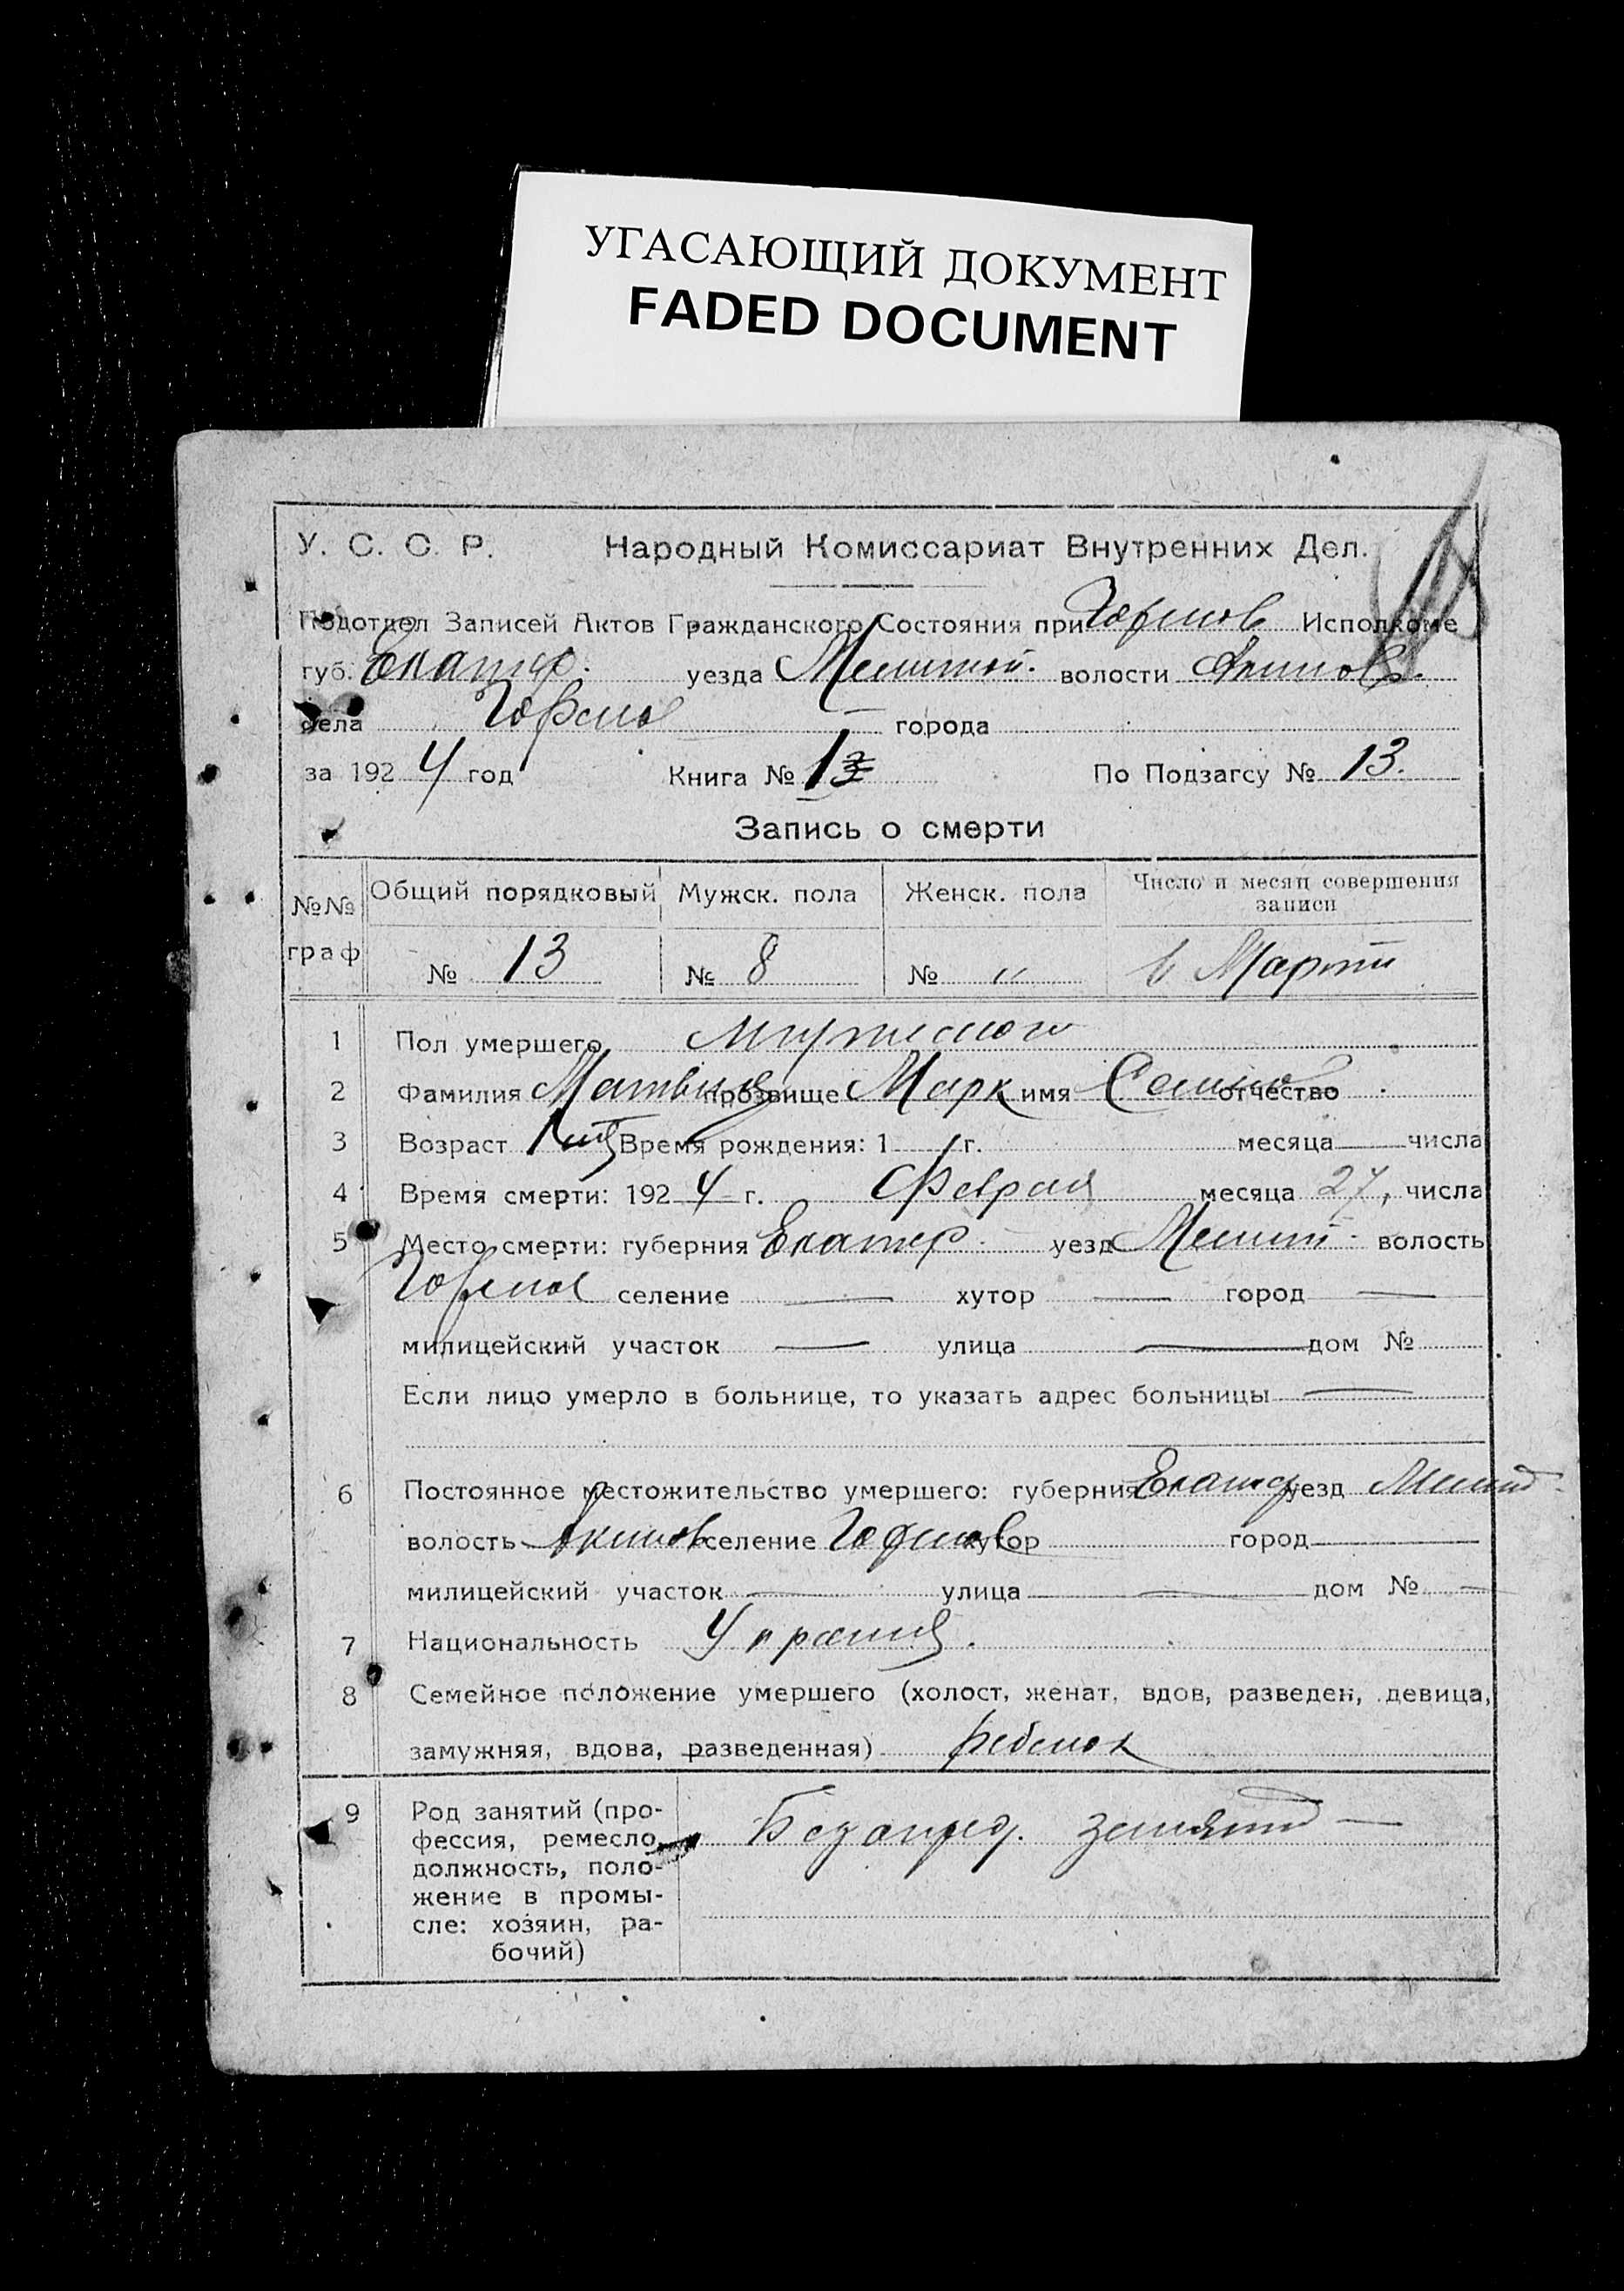 УГАСАЮЩИЙ ДОКУМЕНТ
FADED DOCUMENT
У. С. С. Р. Народный Комиссариат Внутренних Дел.
Подотдел Записей Актов Гражданского Состояния при Исполкоме
губ. Екатер. уезда волости Акимов.
села города
за 1924 год Книга № 1 По Подзагсу № 13.
Запись о смерти
№№ граф Общий порядковый Мужск. пола Женск. пола Число и месяц совершения записи
№ 13 № 8 № „ Марта
1 Пол умершего
2 Фамилия прозвище Марк имя отчество
3 Возраст Время рождения: 1 г. месяца — числа
4 Время смерти: 1924 г. Февраля месяца 27, числа
5 Место смерти: губерния Екатер. уезд волость
селение — хутор — город —
милицейский участок — улица — дом №
Если лицо умерло в больнице, то указать адрес больницы —
6 Постоянное местожительство умершего: губерния Екатер уезд
волость Акимов селение хутор город —
милицейский участок — улица — дом № —
7 Национальность
8 Семейное положение умершего (холост, женат, вдов, разведен, девица,
замужняя, вдова, разведенная) ребенок
9 Род занятий (про-
фессия, ремесло,
должность, поло-
жение в промы-
сле: хозяин, ра-
бочий)